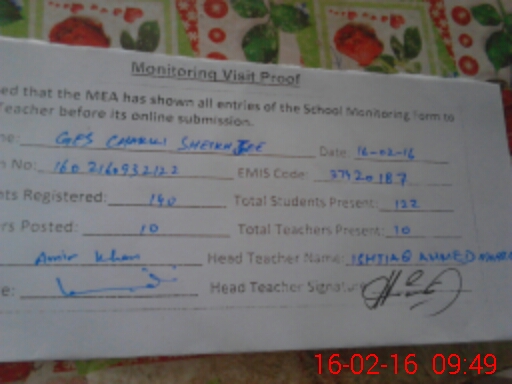 Monitoring Visit Proof
ed that the MEA has shown all entries of the School Monitoring form to
Teacher before its online submission.
me: GPS CHAKLI SHEIKH Date: 16-02-16
n No: EMIS Code:
nts Registered: 140 Total Students Present: 122
rs Posted: 10 Total Teachers Present: 10
Amir Khan Head Teacher Name: ISHTIAQ AHMED
e: Head Teacher Signature
16-02-16 09:49